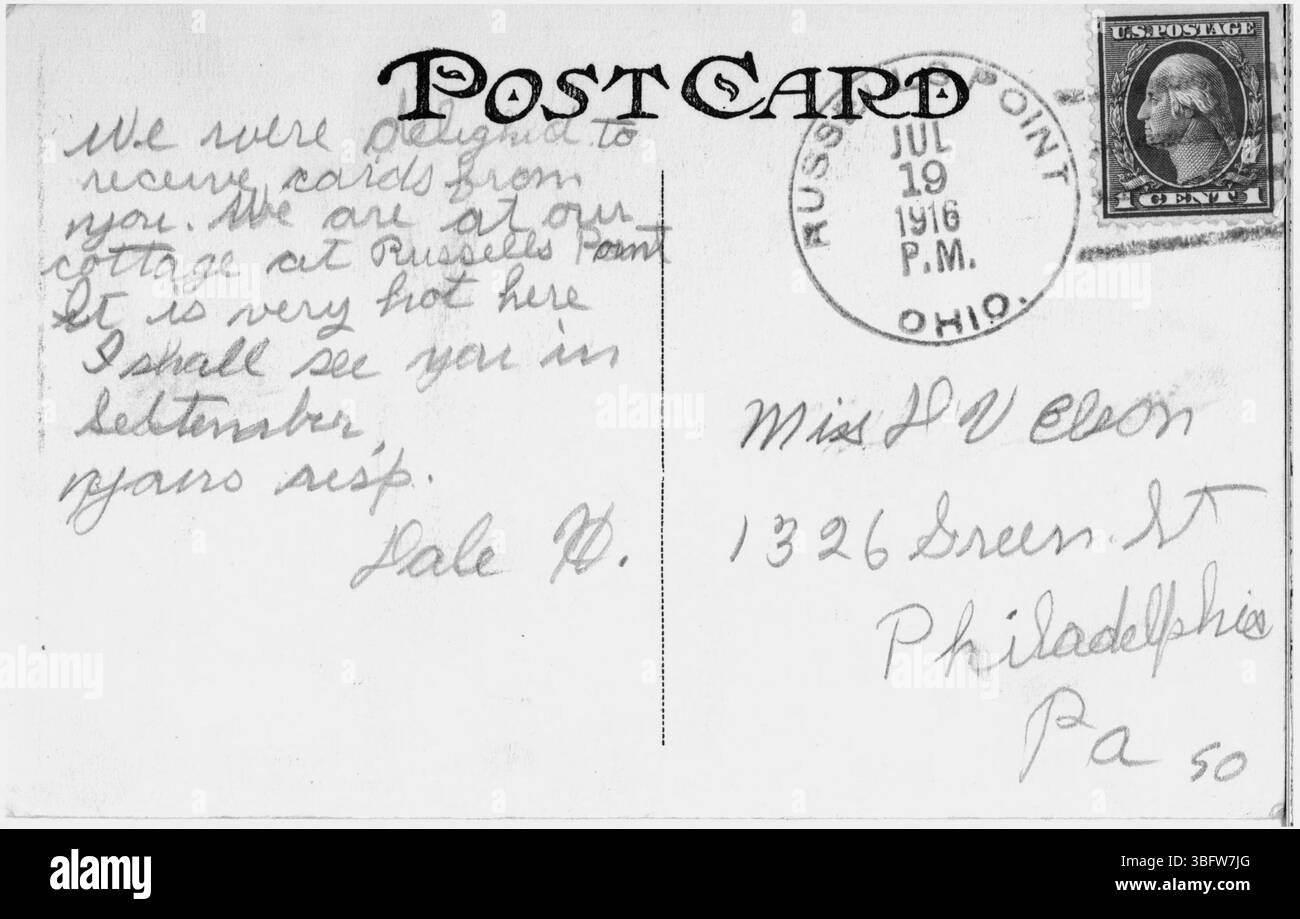 POST CARD
We were delighted to
receive cards from
you. We are at our
cottage at Russells Point
It is very hot here
I shall see you in
September,
yours resp.
Dale H.
RUSSELLS POINT
JUL
19
1916
P.M.
OHIO.
U.S. POSTAGE
1 CENT 1
Miss H V Elson
1326 Green St
Philadelphia
Pa
50
alamy
alamy
Image ID: 3BFW7JG
www.alamy.com